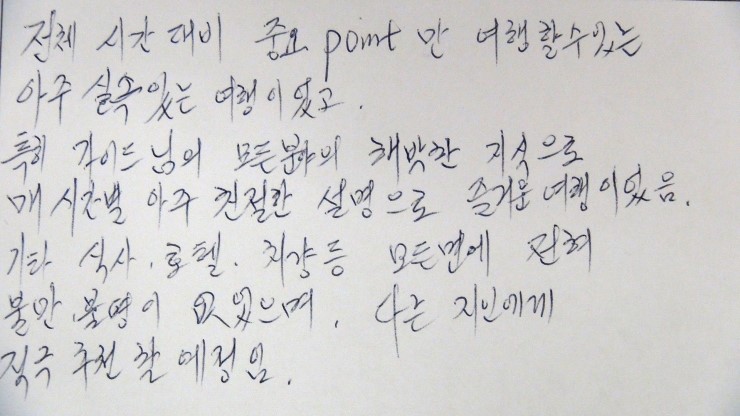 전체 시간 대비 중요 point 만 여행 할수있는
아주 실속있는 여행이었고.
특히 가이드님의 모든분야의 해박한 지식으로
매 시간별 아주 친절한 설명으로 즐거운 여행이었음.
기타 식사. 호텔. 차량등 모든면에 전혀
불만 불평이 없었으며, 다른 지인에게
적극 추천 할 예정임.